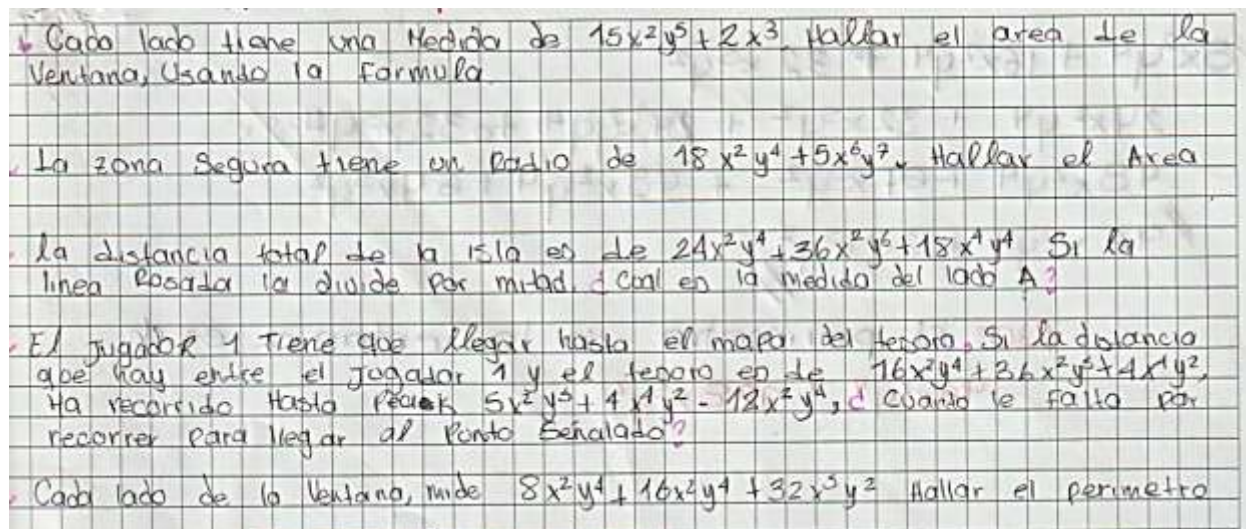 Cada lado tiene una Medida de 15x²y⁵ + 2x³. Hallar el area de la
Ventana, Usando la Formula
La zona Segura tiene un Radio de 18x²y⁴ + 5x⁶y⁷. Hallar el Area
la distancia total de la isla es de 24x²y⁴ + 36x²y⁶ + 18x⁴y⁴ Si la
linea Rosada la divide por mitad, ¿cual es la medida del lado A?
El Jugador 1 Tiene que llegar hasta el mapa del tesoro. Si la distancia
que hay entre el Jugador 1 y el tesoro es de 16x²y⁴ + 36x²y⁵ + 4x⁴y²,
Ha recorrido Hasta Peack 5x²y⁵ + 4x⁴y² - 12x²y⁴, ¿Cuanto le falta por
recorrer Para llegar al Punto Señalado?
Cada lado de la Ventana, mide 8x²y⁴ + 16x²y⁴ + 32x³y² Hallar el perimetro